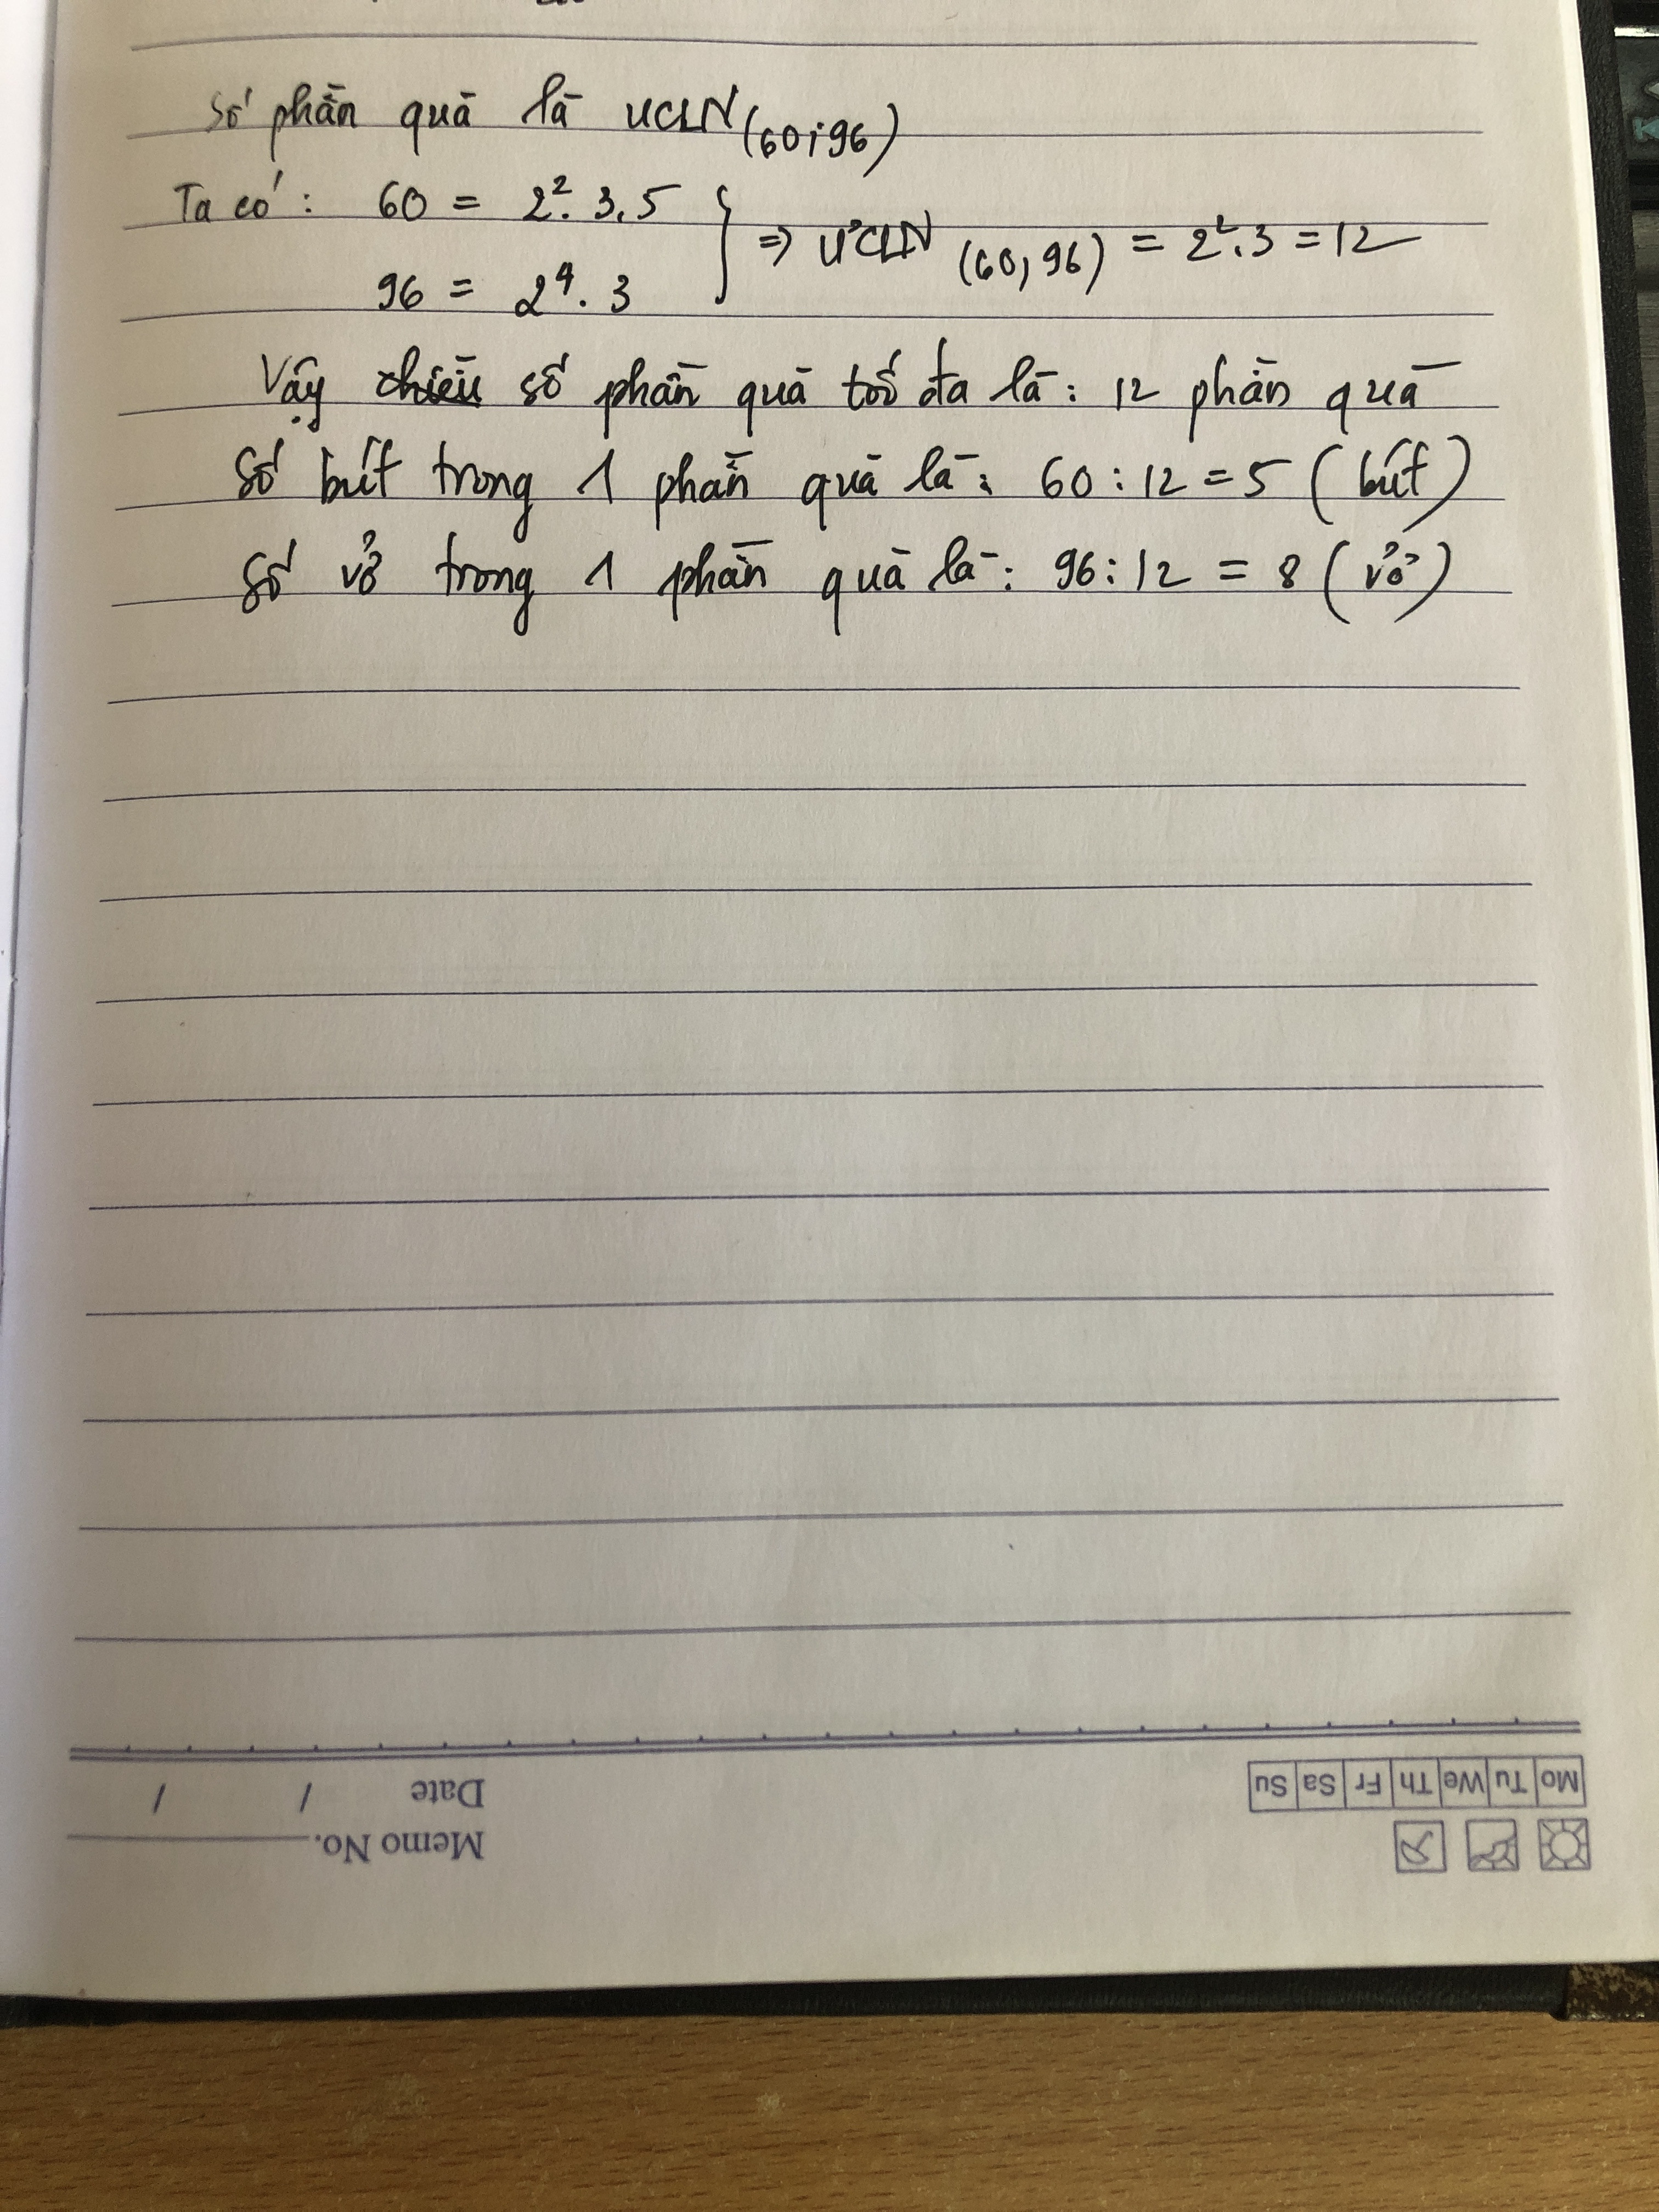 Số phần quà là ƯCLN(60;96)
Ta có: 60 = 2². 3.5
96 = 2⁴. 3
=> ƯCLN (60,96) = 2².3 = 12
Vậy số phần quà tối đa là: 12 phần quà
Số bút trong 1 phần quà là: 60 : 12 = 5 (bút)
Số vở trong 1 phần quà là: 96 : 12 = 8 (vở)
Mo Tu We Th Fr Sa Su
Date / /
Memo No.